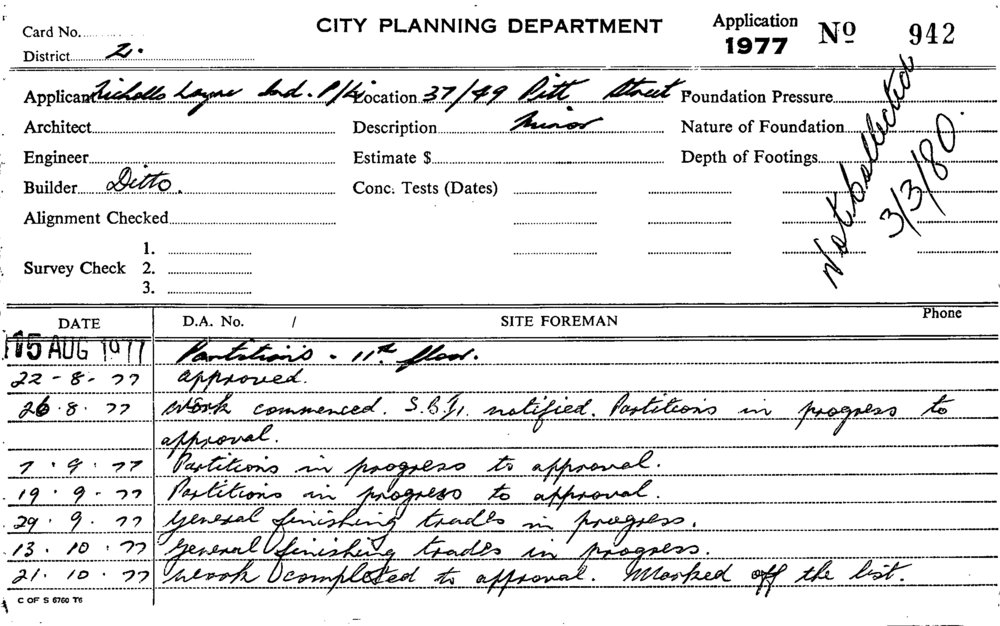 Card No.
CITY PLANNING DEPARTMENT
Application 1977 No 942
District 2.
Applicant Nicholls Layne Ind. P/L Location 37/49 Pitt Street Foundation Pressure
Architect Description Minor Nature of Foundation
Engineer Estimate $ Depth of Footings
Builder Ditto. Conc. Tests (Dates)
Alignment Checked
Survey Check 1. 2. 3.
Not Collected
3/3/80.
DATE D.A. No. / SITE FOREMAN Phone
15 AUG 1977 Partitions - 11th floor.
22-8-77 approved.
26.8.77 Work commenced. notified. Partitions in progress to
approval.
7.9.77 Partitions in progress to approval.
19.9.77 Partitions in progress to approval.
29.9.77 General finishing trades in progress.
13.10.77 General finishing trades in progress.
21.10.77 Work completed to approval. Marked off the list.
C OF S 6760 T6